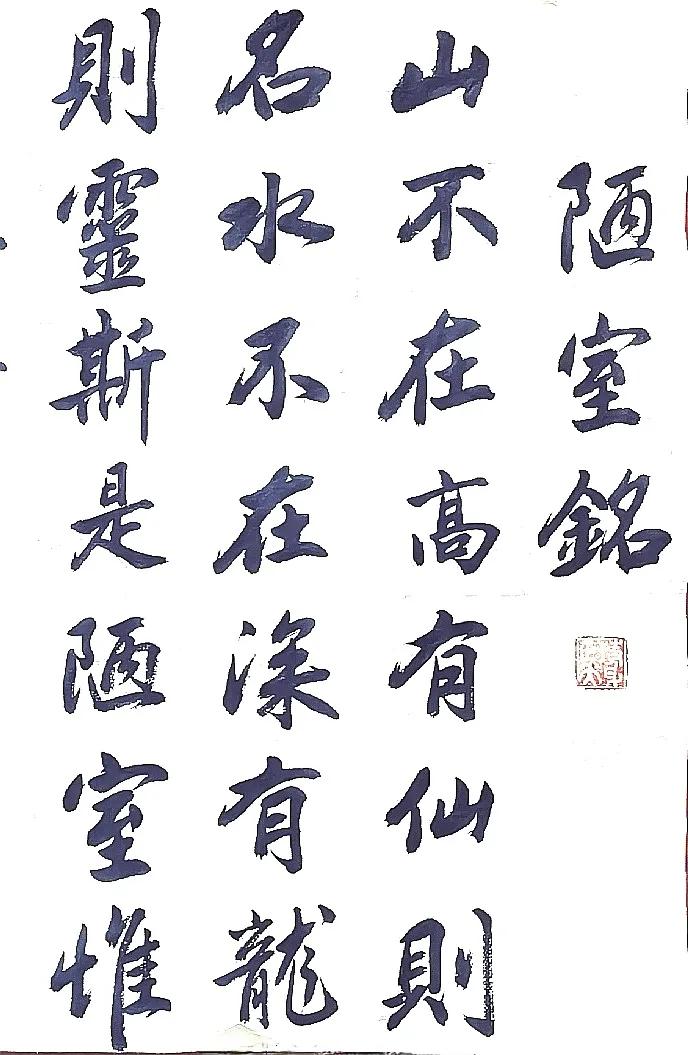 陋室銘
山不在高有仙則
名水不在深有龍
則靈斯是陋室惟